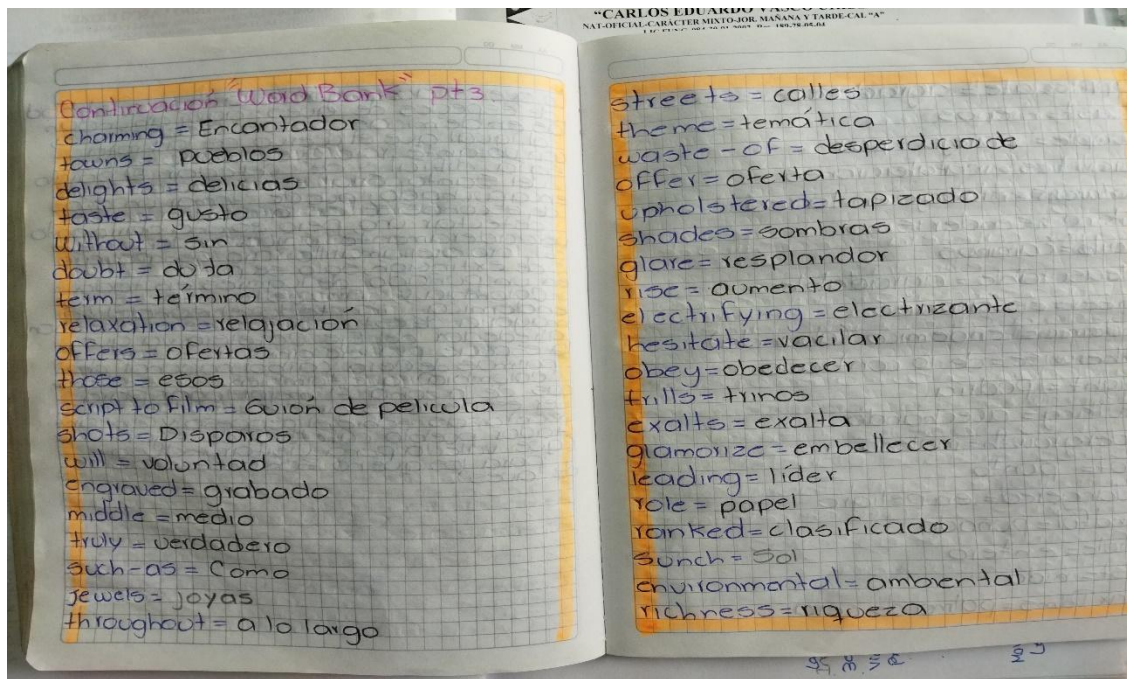 "CARLOS EDUARDO VASCO
NAT-OFICIAL-CARÁCTER MIXTO-JOR. MAÑANA Y TARDE-CAL "A"
Continuación "Word Bank" pt 3
charming = Encantador
towns = pueblos
delights = delicias
taste = gusto
without = sin
doubt = duda
term = término
relaxation = relajación
offers = ofertas
those = esos
script to film = Guión de pelicula
shots = Disparos
will = voluntad
engraved = grabado
middle = medio
truly = verdadero
such-as = Como
jewels = joyas
throughout = a lo largo
streets = calles
theme = temática
waste-of = desperdicio de
offer = oferta
upholstered = tapizado
shades = sombras
glare = resplandor
rise = aumento
electrifying = electrizante
hesitate = vacilar
obey = obedecer
trills = trinos
exalts = exalta
glamorize = embellecer
leading = líder
role = papel
ranked = clasificado
sunch = Sol
environmental = ambiental
richness = riqueza